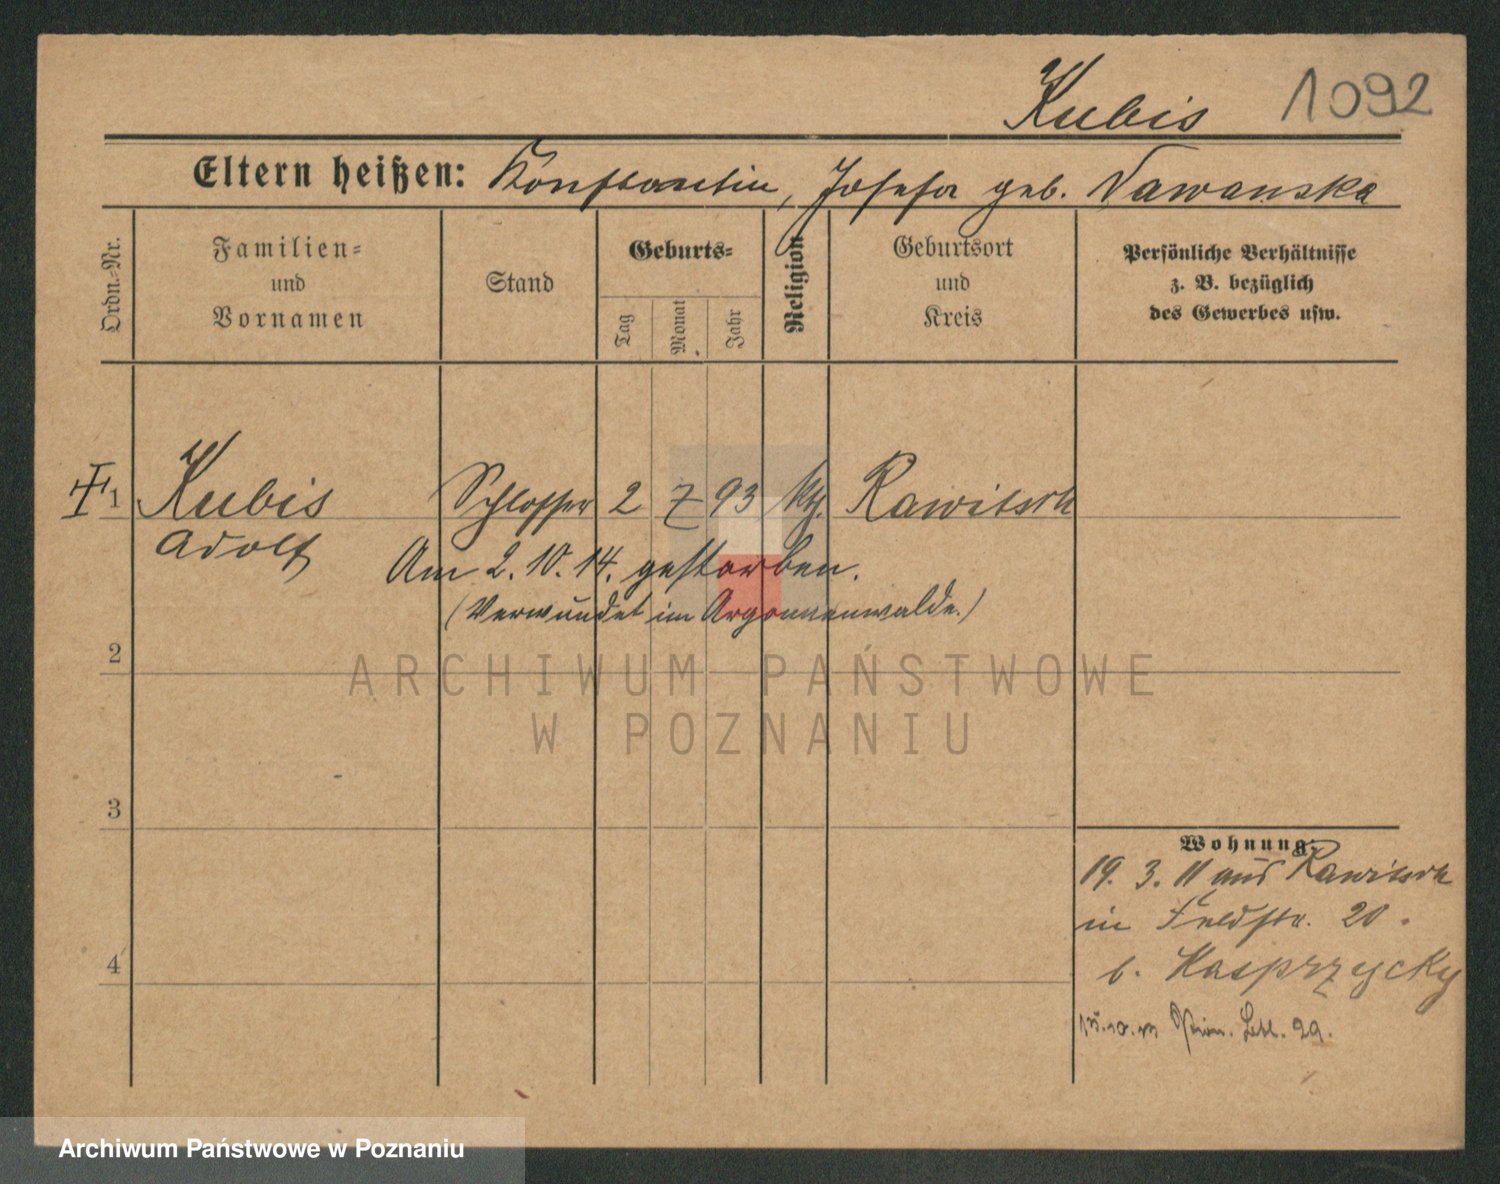 Kubis 1092
Eltern heißen: Konstantin, Josefa geb. Nawanska
Ordn.-Nr.
Familien-
und
Vornamen
Stand
Geburts-
Tag
Monat
Jahr
Religion
Geburtsort
und
Kreis
Persönliche Verhältnisse
z. B. bezüglich
des Gewerbes usw.
1 Kubis Schlosser 2 7 93 kth. Rawitsch
Adolf
Am 2. 10. 14. gestorben.
(Verwundet im Argonnenwalde.)
2
ARCHIWUM PAŃSTWOWE
W POZNANIU
3
Wohnung:
19. 3. 11 aus Rawitsch
in Feldstr. 20.
4
b. Kasprzycky
Pion. Batl. 29.
Archiwum Państwowe w Poznaniu